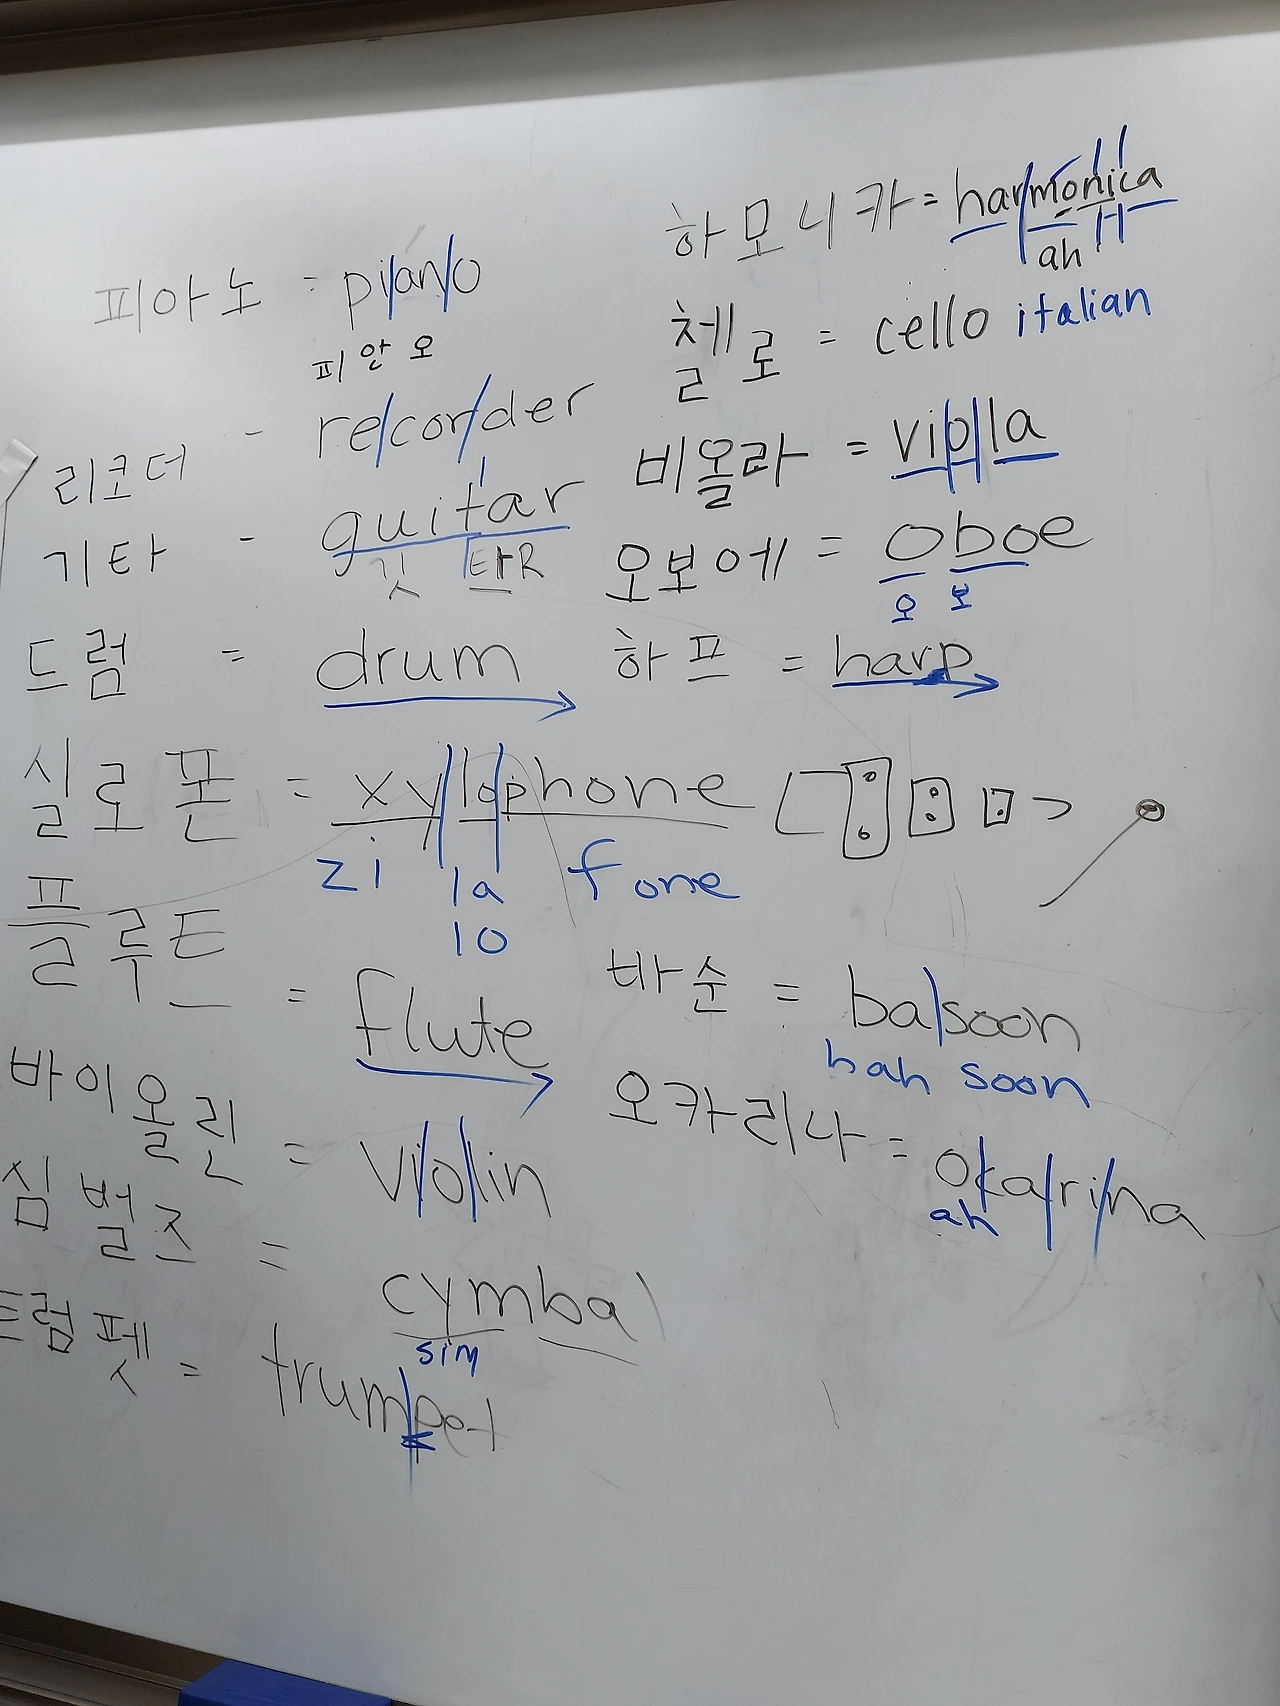 피아노 = piano
피 안 오
리코더 - recorder
기타 - guitar
깃 타R
드럼 = drum
실로폰 = xylophone
zi la fone
lo
플루트 = flute
바이올린 = violin
심벌즈 = cymbal
sim
트럼펫 = trumpet
하모니카 = harmonica
ah
첼로 = cello italian
비올라 = viola
오보에 = oboe
오 보
하프 = harp
바순 = basoon
bah soon
오카리나 = okarina
ah